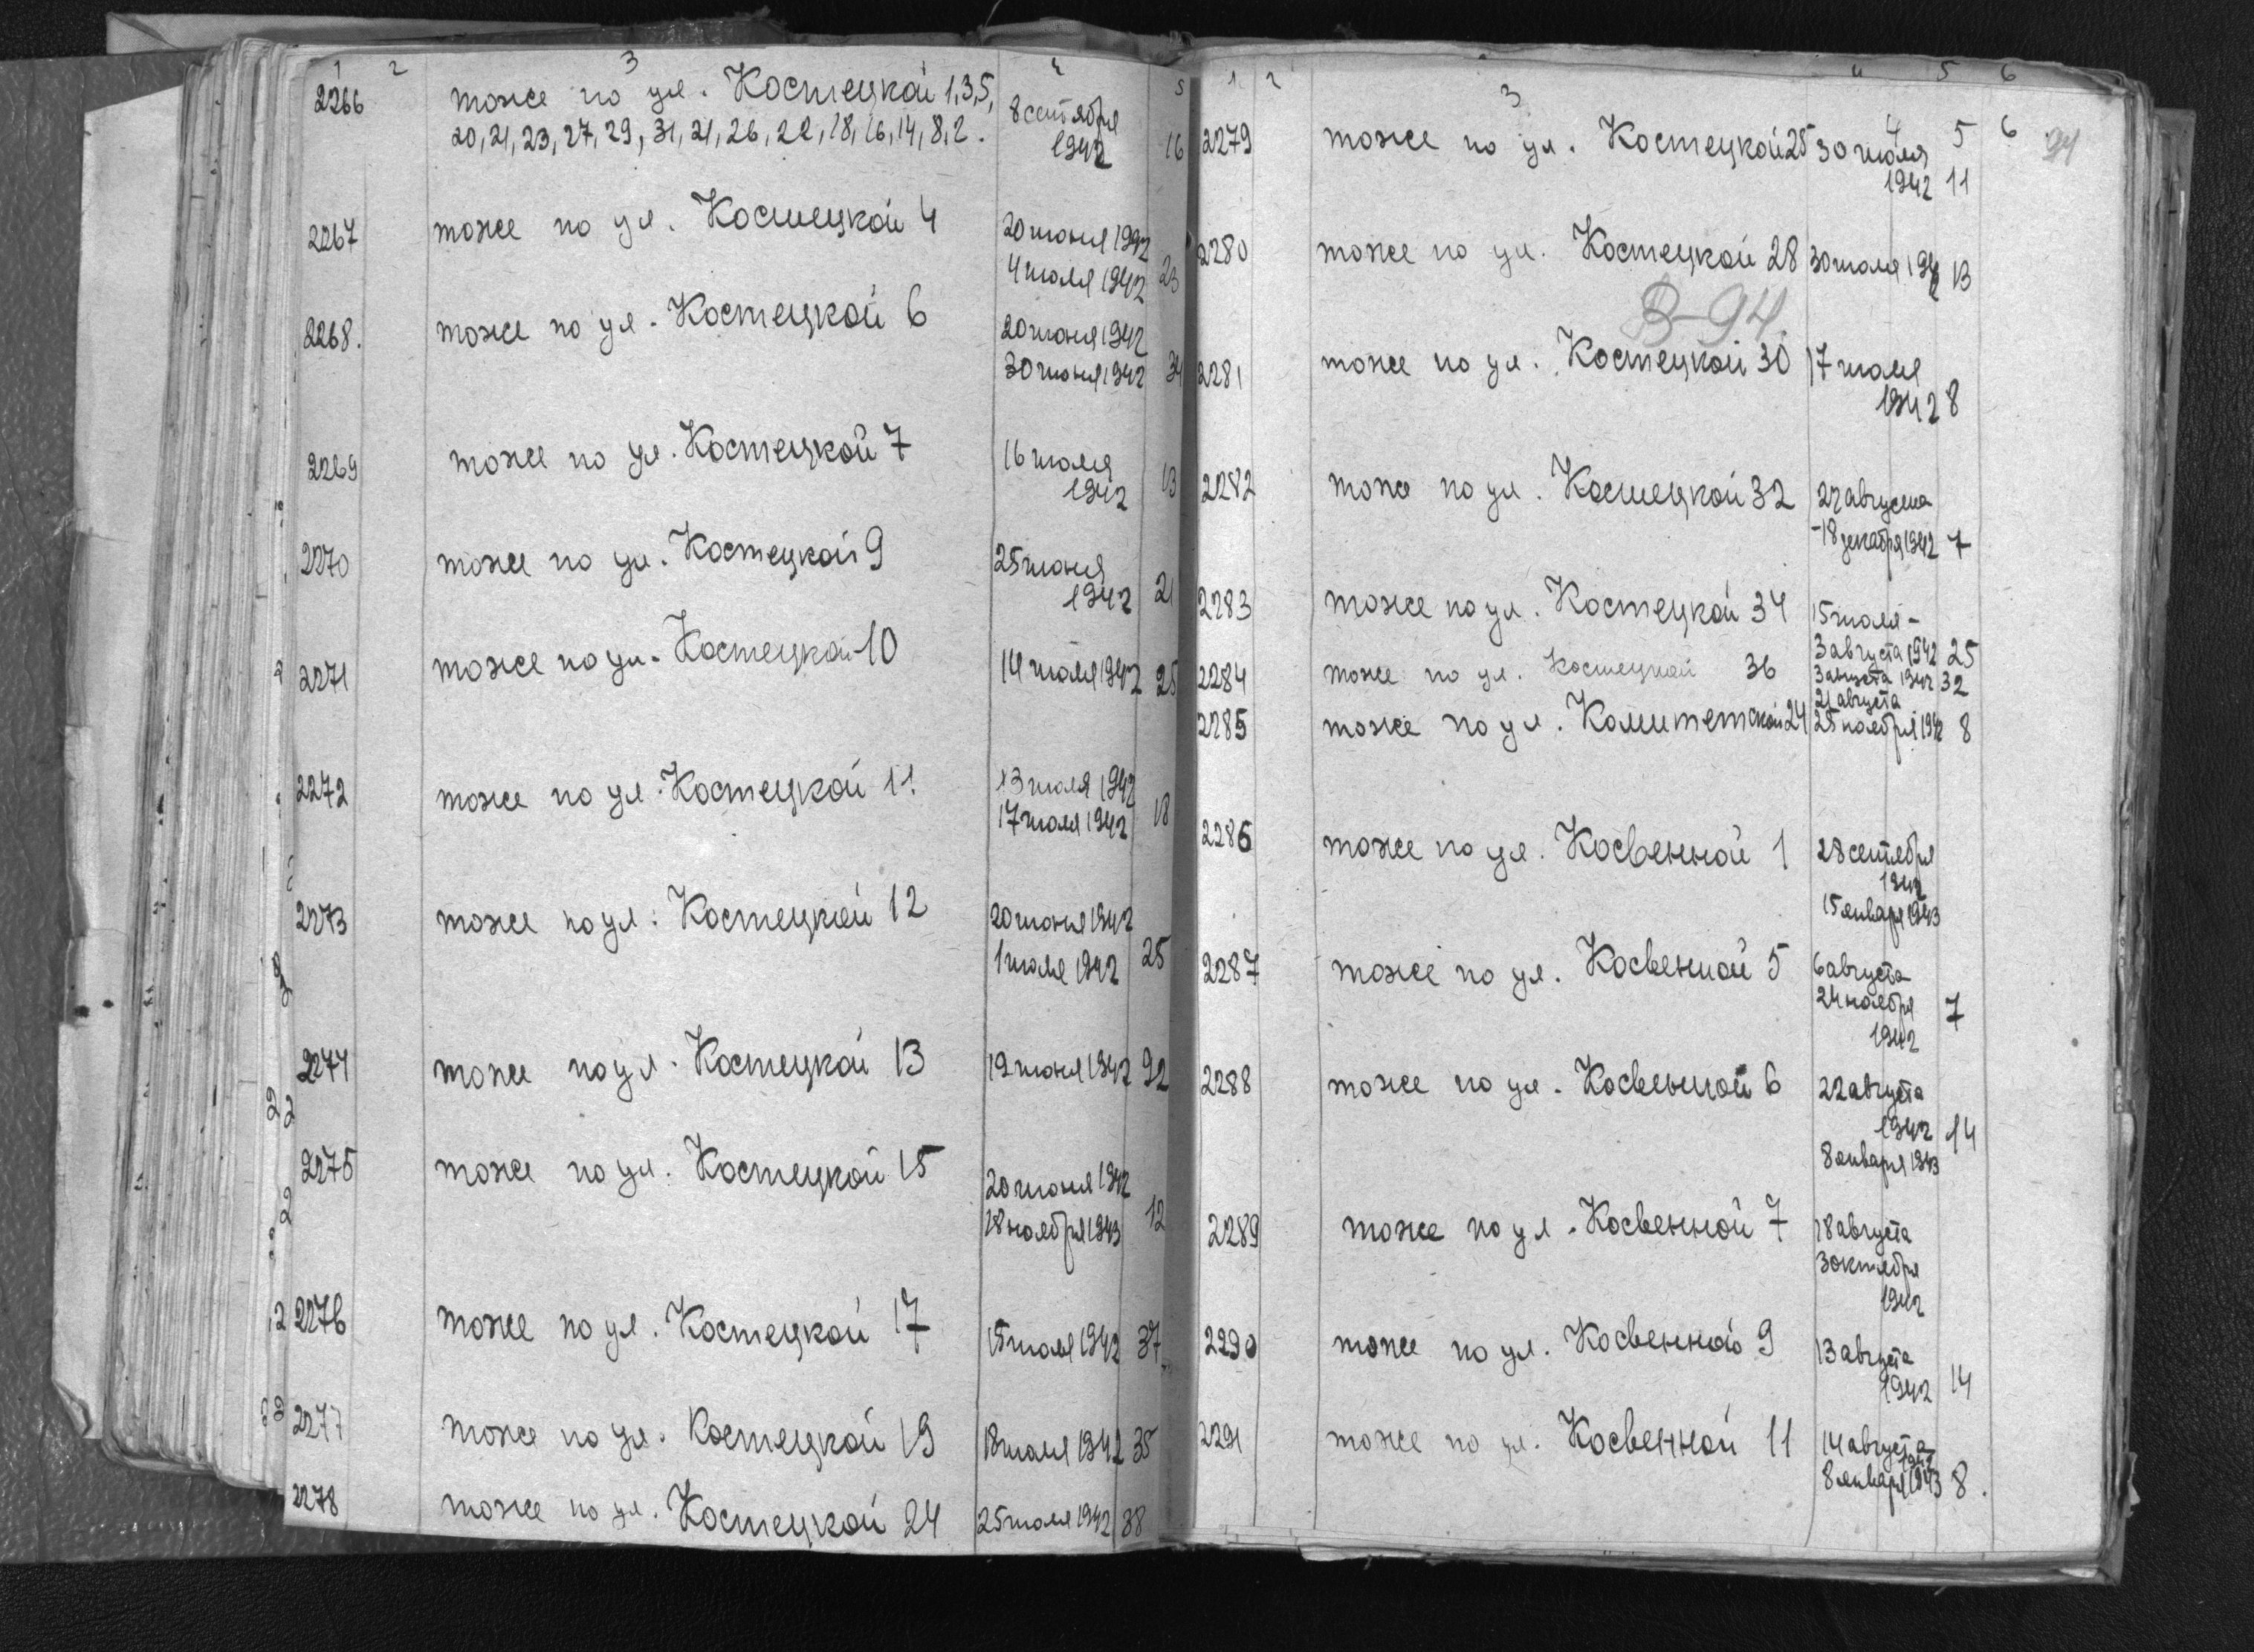 1 2 3 4 5
2266 тоже по ул. Костецкой 1,3,5, 8 сентября
20, 21, 23, 27, 29, 31, 21, 26, 22, 18, 16, 14, 8, 2. 1942 16
2267 тоже по ул. Костецкой 4 20 июня 1942
4 июля 1942 23
2268. тоже по ул. Костецкой 6 20 июня 1942
30 июня 1942 34
2269 тоже по ул. Костецкой 7 16 июля
1942 13
2270 тоже по ул. Костецкой 9 25 июня
1942 21
2271 тоже по ул. Костецкой 10 14 июля 1942 25
2272 тоже по ул. Костецкой 11 13 июля 1942
17 июля 1942 18
2273 тоже по ул. Костецкой 12 20 июня 1942
1 июля 1942 25
2274 тоже по ул. Костецкой 13 19 июня 1942 92
2275 тоже по ул. Костецкой 15 20 июня 1942
28 ноября 1943 12
2276 тоже по ул. Костецкой 17 15 июля 1942 37
2277 тоже по ул. Костецкой 19 18 июля 1942 35
2278 тоже по ул. Костецкой 24 25 июля 1942 38
1 2 3 4 5 6
4 5 6 94
2279 тоже по ул. Костецкой 25 30 июля
1942 11
2280 тоже по ул. Костецкой 28 30 июля 1942 13
В-94
2281 тоже по ул. Костецкой 30 17 июля
1942 8
2282 тоже по ул. Костецкой 32 27 августа
-18 декабря 1942 7
2283 тоже по ул. Костецкой 34 15 июля -
3 августа 1942 25
2284 тоже по ул. Костецкой 36 3 августа 1942 32
21 августа
2285 тоже по ул. Комитетской 24 25 ноября 1942 8
2286 тоже по ул. Косвенной 1 28 сентября
1942
15 января 1943
2287 тоже по ул. Косвенной 5 6 августа
24 ноября 7
1942
2288 тоже по ул. Косвенной 6 22 августа
1942 14
8 января 1943
2289 тоже по ул. Косвенной 7 18 августа
3 октября
1942
2290 тоже по ул. Косвенной 9 13 августа
1942 14
2291 тоже по ул. Косвенной 11 14 августа
1942
8 января 1943 8.